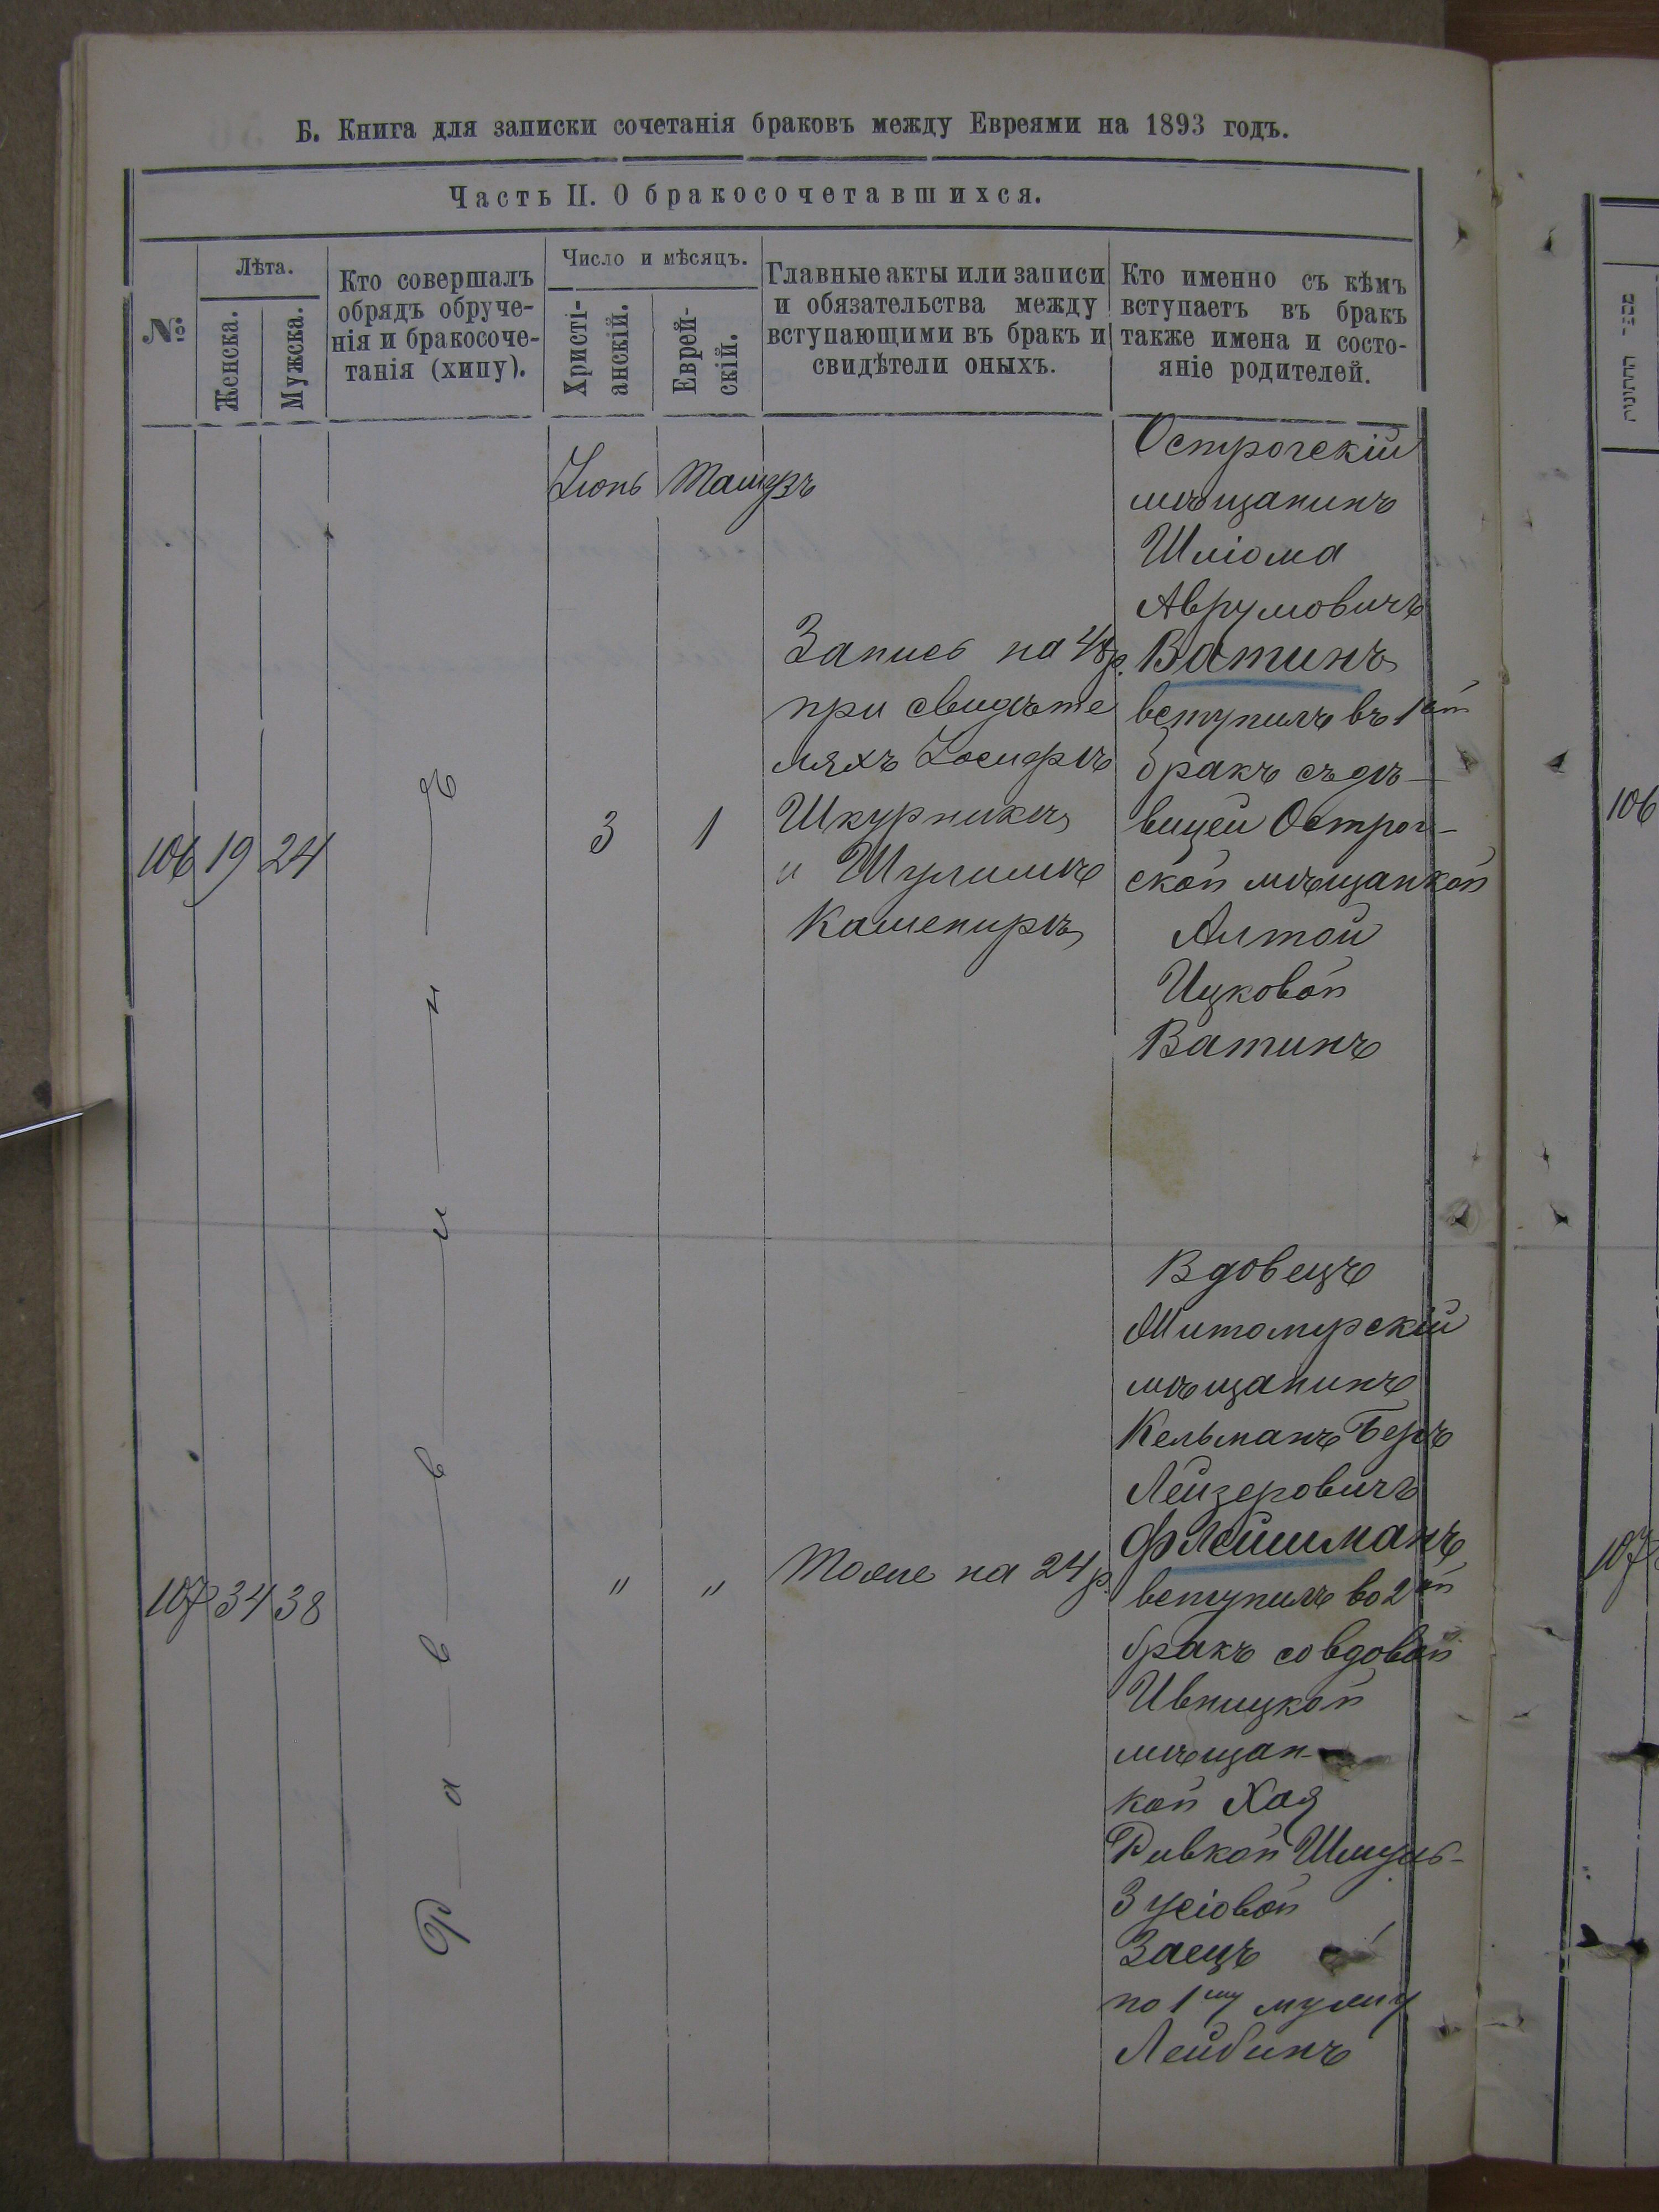 Б. Книга для записки сочетанія браковъ между Евреями на 1893 годъ.
Часть II. О бракосочетавшихся.
№
Лѣта.
Женска.
Мужска.
Кто совершалъ
обрядъ обруче-
нія и бракосоче-
танія (хипу).
Число и мѣсяцъ.
Христі-
анскій.
Еврей-
скій.
Главные акты или записи
и обязательства между
вступающими въ бракъ и
свидѣтели оныхъ.
Кто именно съ кѣмъ
вступаетъ въ бракъ
также имена и состо-
яніе родителей.
Іюнь
106 19 24
3 1
Запись на 48 р.
при свидѣте
ляхъ Іосифѣ
Шкурника
и Шулимѣ
Кашепирѣ
Острогскій
мѣщанинъ
Шліома
Аврумовичъ
Ватинъ
вступилъ въ 1ый
бракъ съ дѣ-
вицей Острог-
ской мѣщанкой
Алтой
Ицковой
Ватинъ
Раввинъ
107 34 38
" "
Тоже на 24 р.
Вдовецъ
Житомирскій
мѣщанинъ
Кельманъ Беръ
Лейзеровичъ
Флейшманъ
вступилъ во 2ой
бракъ со вдовой
Ивницкой
мѣщан-
кой Хая
Ривкой Шмуль-
Зусіовой
Заецъ
по 1му мужу
Лейбинъ
106
107